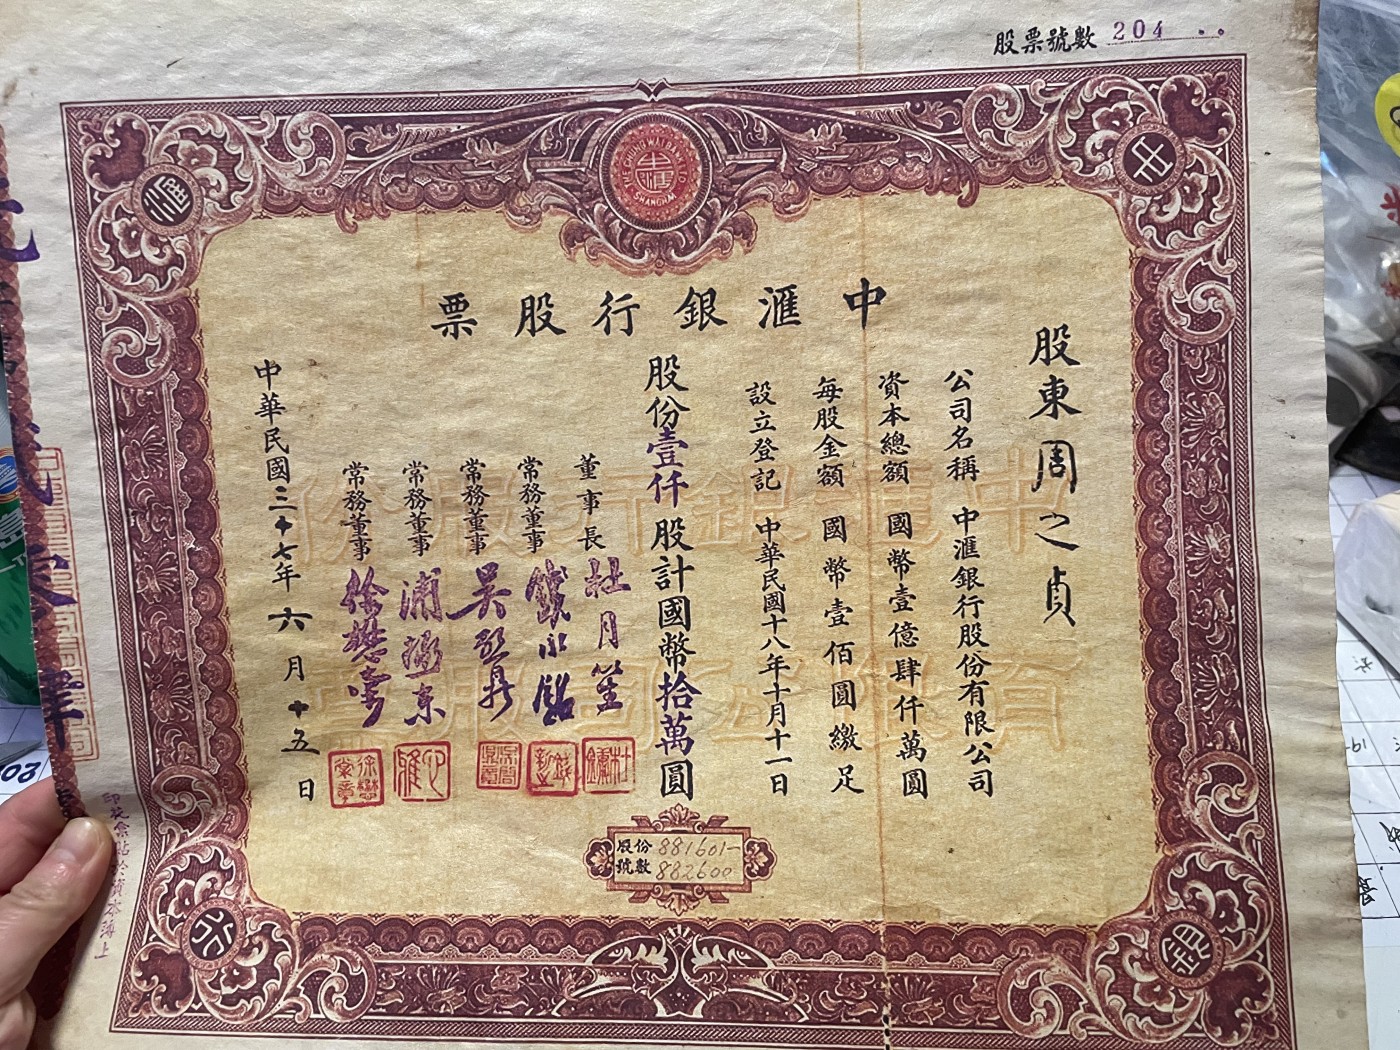 股票號數 204
THE CHUNG WAI BANK LTD
中匯
SHANGHAI
中
匯
銀
行
中滙銀行股票
股東周之貞
公司名稱 中滙銀行股份有限公司
資本總額 國幣壹億肆仟萬圓
每股金額 國幣壹佰圓繳足
設立登記 中華民國十八年十月十一日
股份壹仟股計國幣拾萬圓
董事長 杜月笙
常務董事 錢永銘
常務董事 吳啟鼎
常務董事 浦拯東
常務董事 徐懋棠
中華民國三十七年六月十五日
股份號數 881601-
882600
中滙銀行股份
有限公司股票
印花稅貼於資本簿上